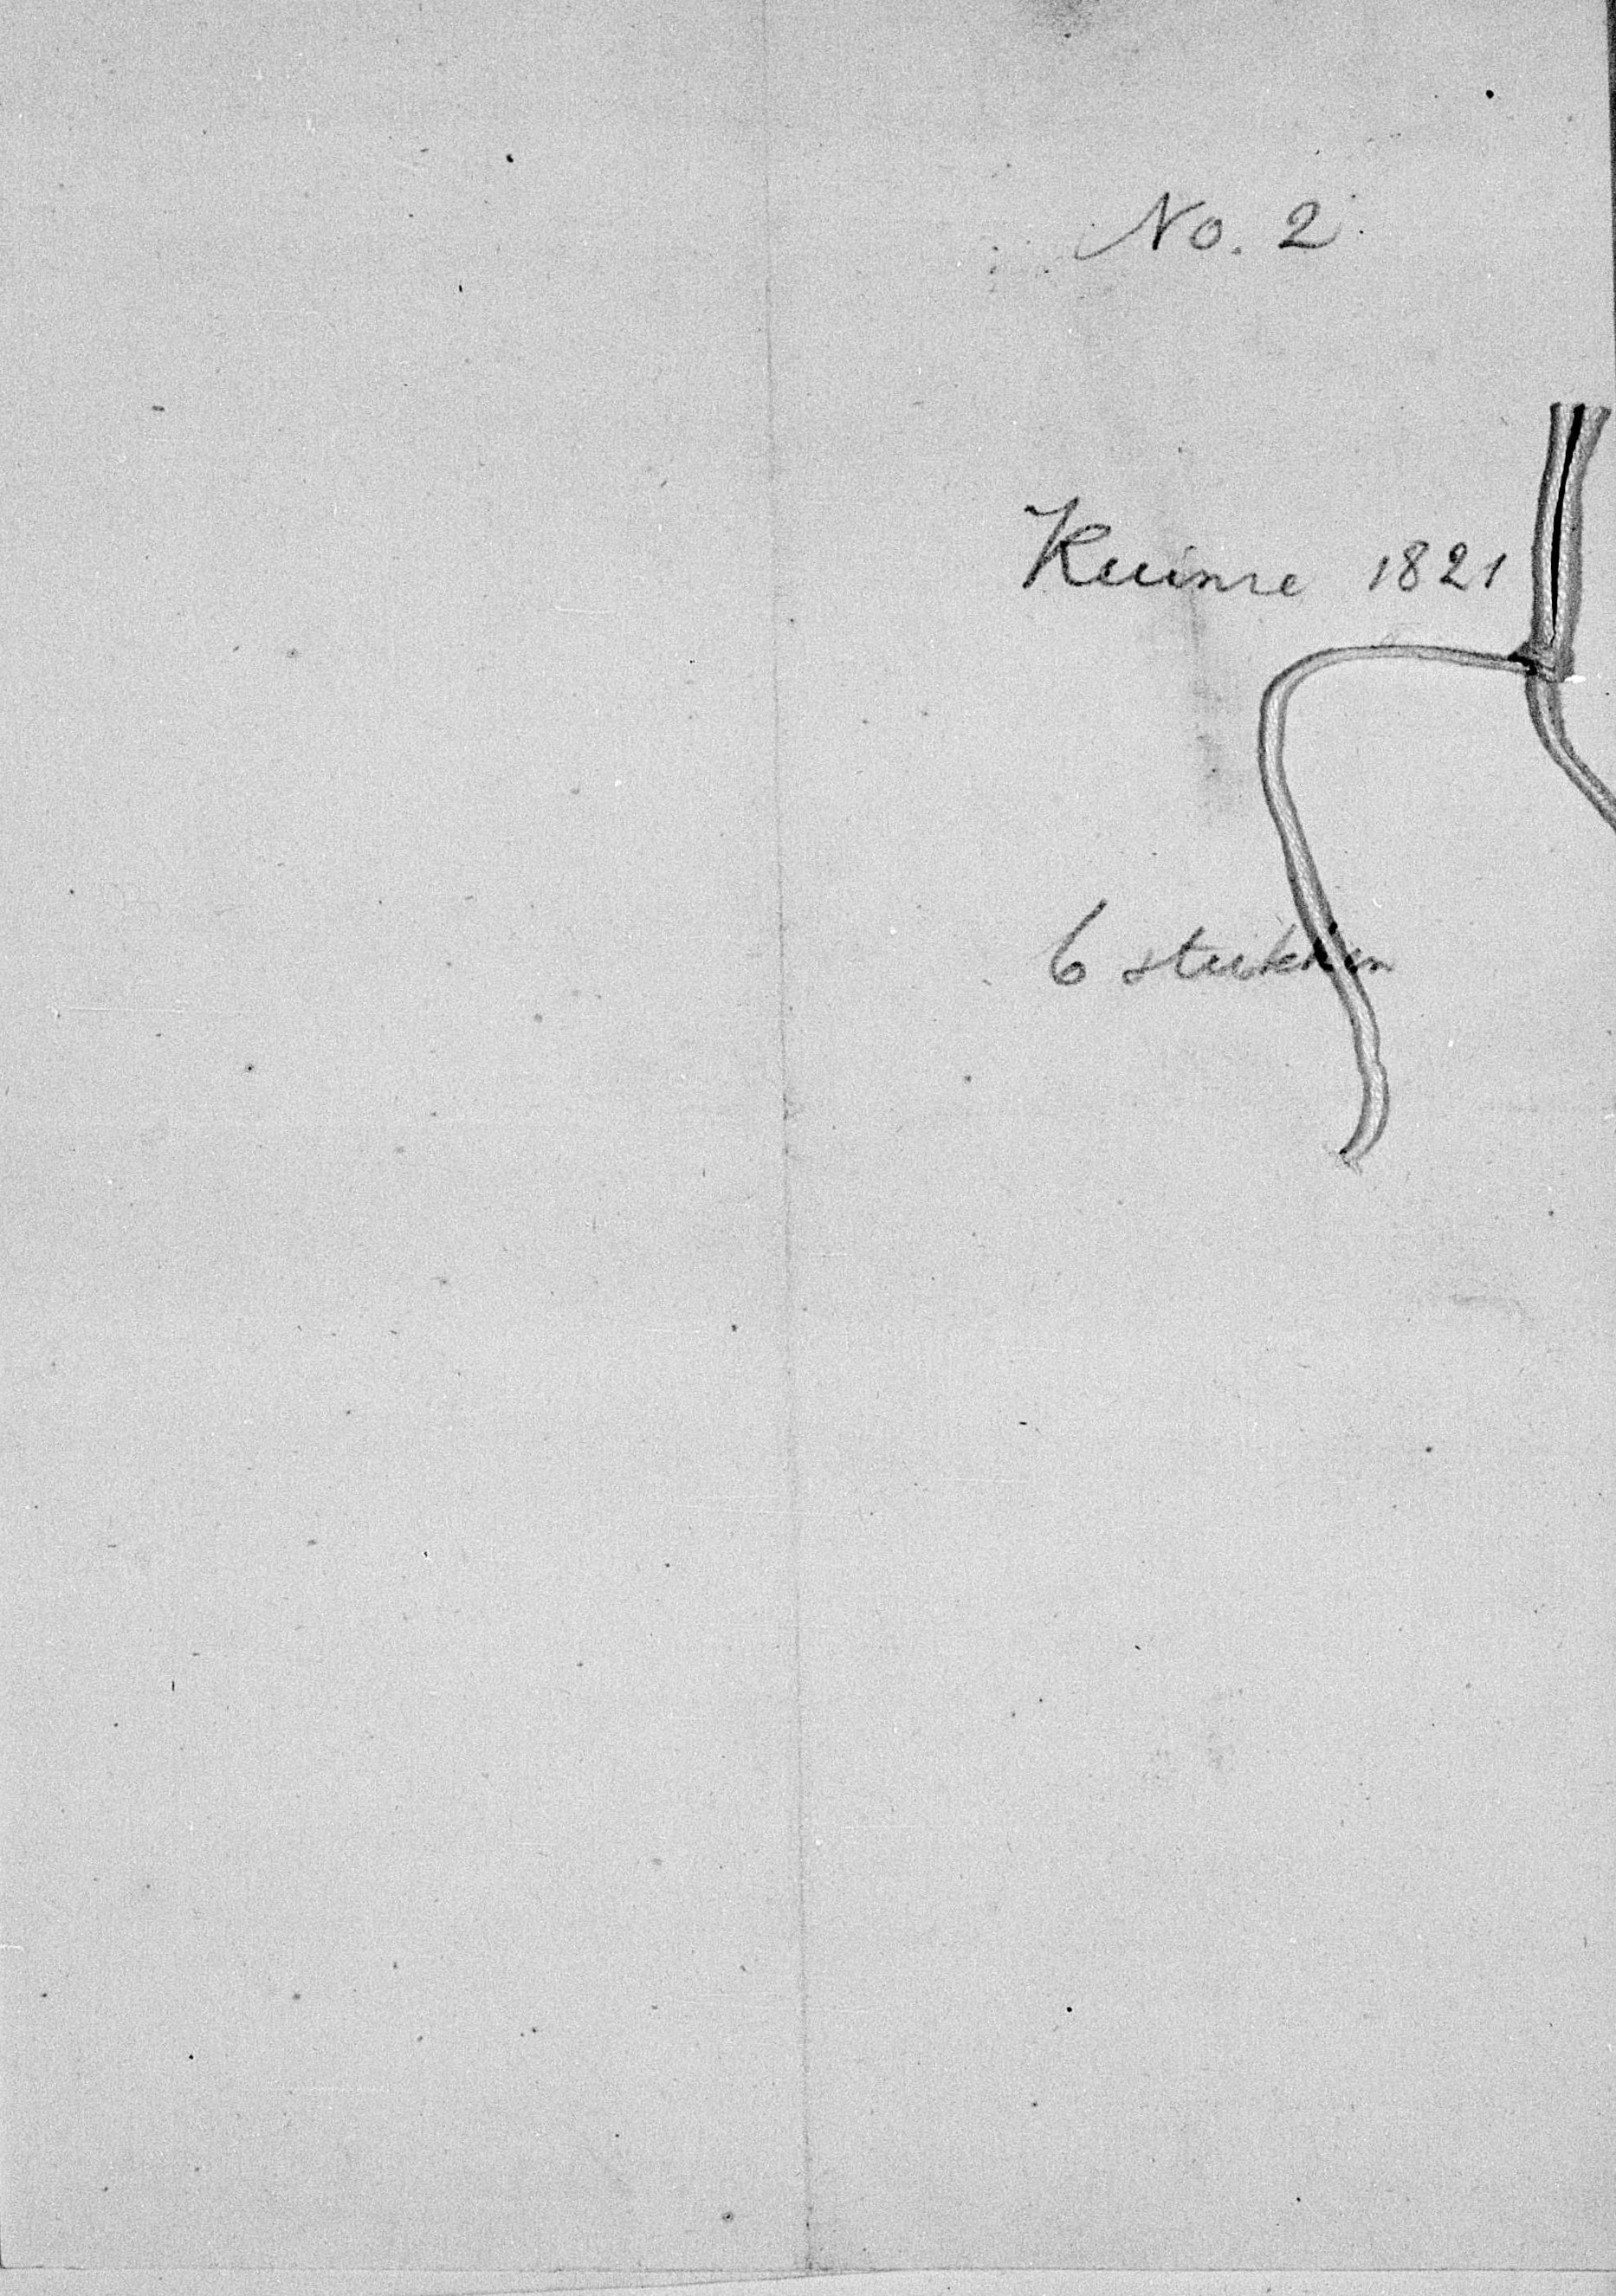 No. 2
Kuinre 1821
6 stukken